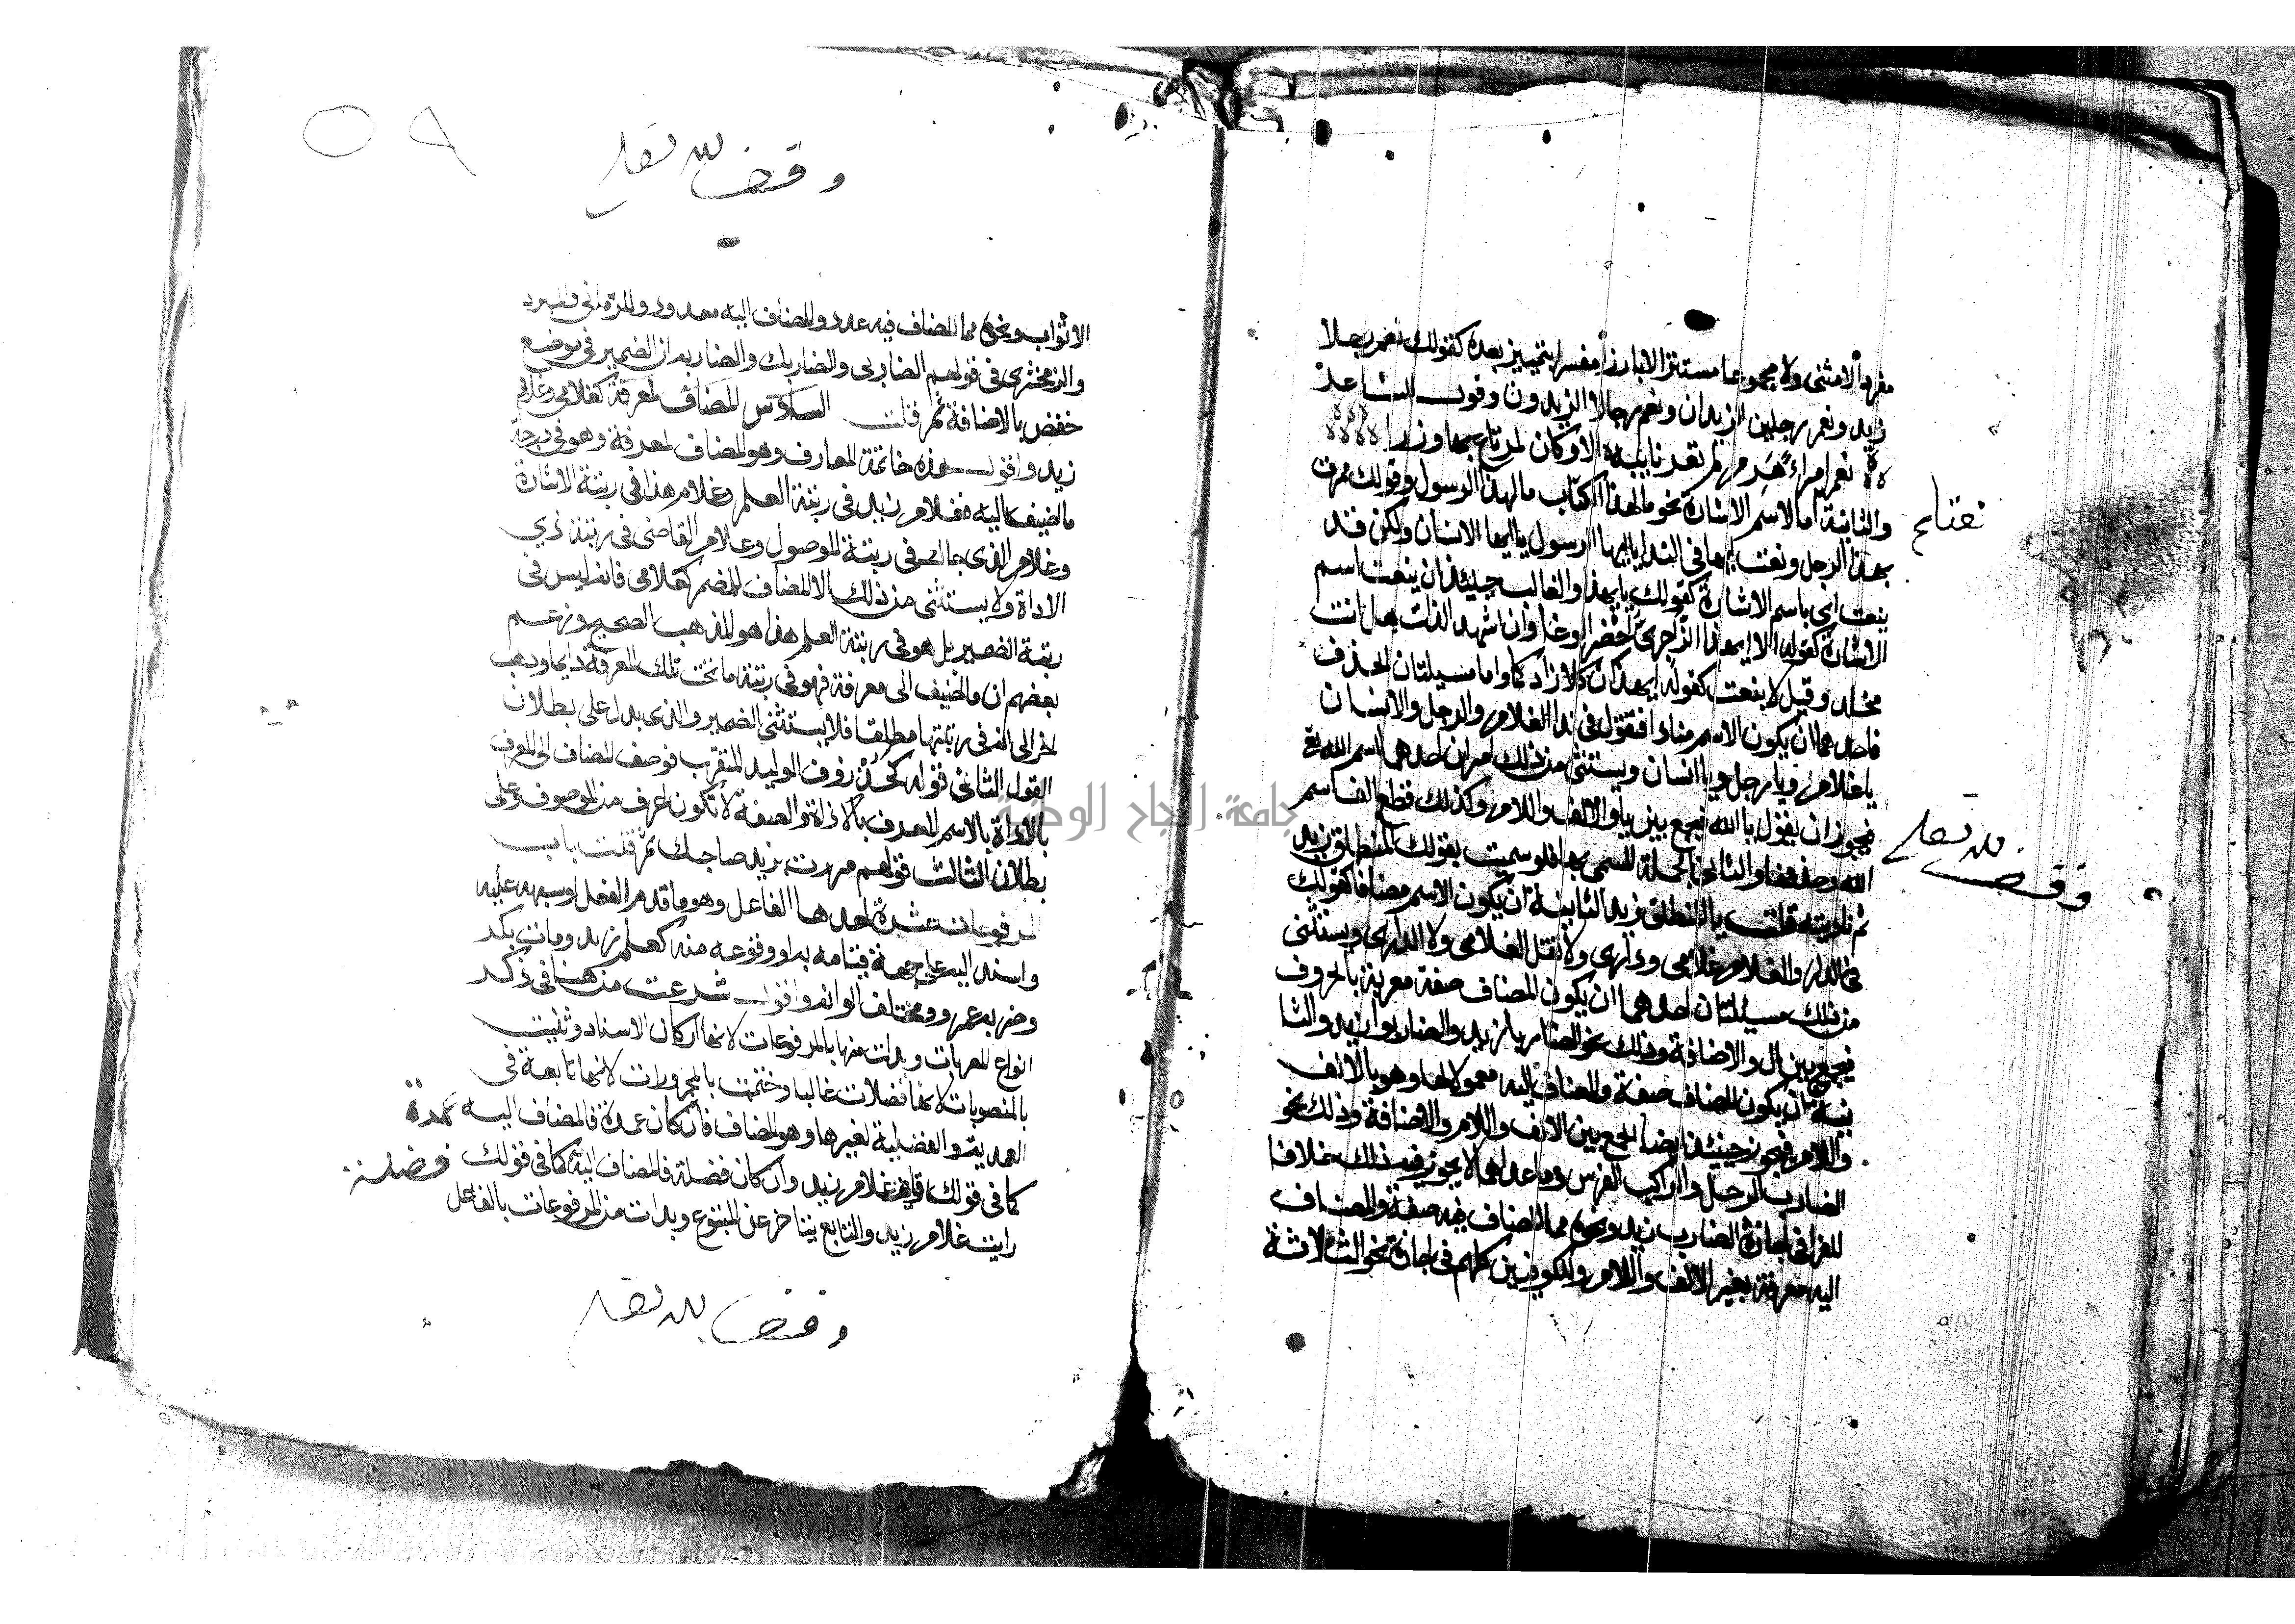 مفردا لا مثنى ولا مجموعا مستترا لا بارزا مفسرا بتمييز بعده كقولك نعم رجلا
زيد ونعم رجلين الزيدان ونعم رجالا الزيدون وقول الشاعر
نعم امرأ هرم لم تعد نايبة الا وكان لمرتاع بها وزرا
والثانية اما الاسم الاشارة نحو مال هذا الكتاب مال هذا الرسول وقولك مررت
بهذا الرجل ونعت ايها في الندا يا ايها الرسول يا ايها الانسان ولكن قد
ينعت اي باسم الاشارة كقولك يا ايهذا والغالب حينئذ ان ينعت اسم
الاشارة كقوله الا ايهذا الزاجري احضر الوغا وان اشهد اللذات هل انت
مخلد وقيل لا ينعت كقوله ايهذان كلا زادكما واما مسيلتان الحذف
فاحداهما ان يكون الاسم منادا فتقول في ندا الغلام والرجل والانسان
يا غلام ويا رجل ويا انسان ويستثنى من ذلك امران احدهما اسم الله تع
فيجوز ان يقول يا الله فيجمع بين يا والالف واللام وكذلك قطع الف اسم
الله وحذفها والثاني الجملة المسمى بها فلو سميت بقولك المنطلق زيد
ثم ناديته قلت يا المنطلق زيد الثانية ان يكون الاسم مضافا كقولك
في الدار والغلام غلامي وداري ولا تقل الغلامي ولا الداري ويستثنى
من ذلك مسيلتان احدهما ان يكون المضاف صفة معربة بالحروف
فيجمع بين ال والاضافة وذلك نحو الضاربا زيد والضاربوا زيد والثا
نية ان يكون المضاف صفة والمضاف اليه معمولا لها وهو بالالف
واللام فيجوز حينئذ ايضا الجمع بين الالف واللام والاضافة وذلك نحو
الضارب الرجل والراكب الفرس وما عداهما لا يجوز فيه ذلك خلافا
للفرا في اجازة الضارب زيد ونحوه مما المضاف فيه صفة والمضاف
اليه معرفة بغير الالف واللام وللكوفيين كلهم في اجازة نحو الثلاثة
وقف لله تعلى
٥٩
وقف لله تعلى
الاثواب ونحوه مما المضاف فيه عدد والمضاف اليه معدود وللرماني والمبرد
والزمخشري في قولهم الضاربي والضاربك والضاربه ان الضمير في موضع
خفض بالاضافة ثم قلت السادس المضاف لمعرفة كغلامي وغلام
زيد واقول هذه خاتمة المعارف وهو المضاف لمعرفة وهو في درجة
ما اضيف اليه فغلام زيد في رتبة العلم وغلام هذا في رتبة الاشارة
وغلام الذي جاك في رتبة الموصول وغلام القاضي في رتبة ذي
الاداة ولا يستثنى من ذلك الا المضاف للمضمر كغلامي فانه ليس في
رتبة الضمير بل هو في رتبة العلم هذا هو المذهب الصحيح وزعم
بعضهم ان ما اضيف الى معرفة فهو في رتبة ما تحت تلك المعرفة دايما وذهب
اخر الى انه في رتبتها مطلقا فلا يستثنى الضمير والذي يدل على بطلان
القول الثاني قوله كخذروف الوليد المثقب فوصف المضاف الى المعرف
بالاداة بالاسم المعرف بالاداة والصفة لا تكون اعرف من الموصوف وعلى
بطلان الثالث قولهم مررت بزيد صاحبك ثم قلت باب
المرفوعات عشرة احدها الفاعل وهو ما قدم الفعل او شبهه عليه
واسند اليه على جهة قيامه به او وقوعه منه كعلم زيد ومات بكر
وضرب عمرو ومختلف الوانه واقول شرعت من هنا في ذكر
انواع المعربات وبدات منها بالمرفوعات لانها اركان الاسناد وثنيت
بالمنصوبات لانها فضلات غالبا وختمت بالمجرورات لانها تابعة في
العمدية والفضلية لغيرها وهو المضاف فان كان عمدة فالمضاف اليه عمدة
كما في قولك قام غلام زيد وان كان فضلة فالمضاف اليه كما في قولك فضلة
رايت غلام زيد والتابع يتاخر عن المتبوع وبدات من المرفوعات بالفاعل
وقف لله تعلى
جامعة النجاح الوطنية